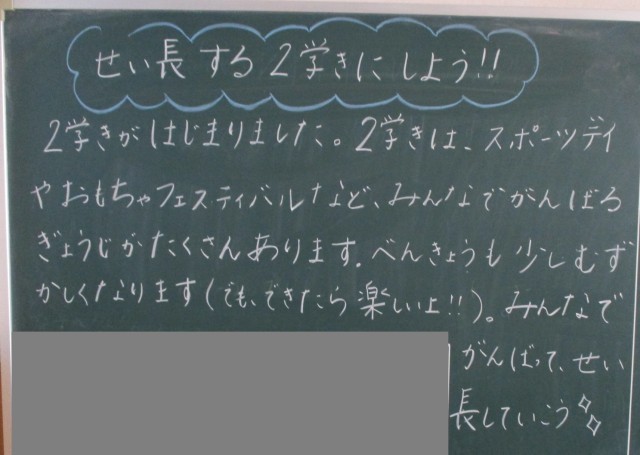 せい長する2学きにしよう!!
2学きがはじまりました。2学きは、スポーツデイ
やおもちゃフェスティバルなど、みんなでがんばる
ぎょうじがたくさんあります。べんきょうも少しむず
かしくなります(でも、できたら楽しいよ!!)。みんなで
がんばって、せい
長していこう